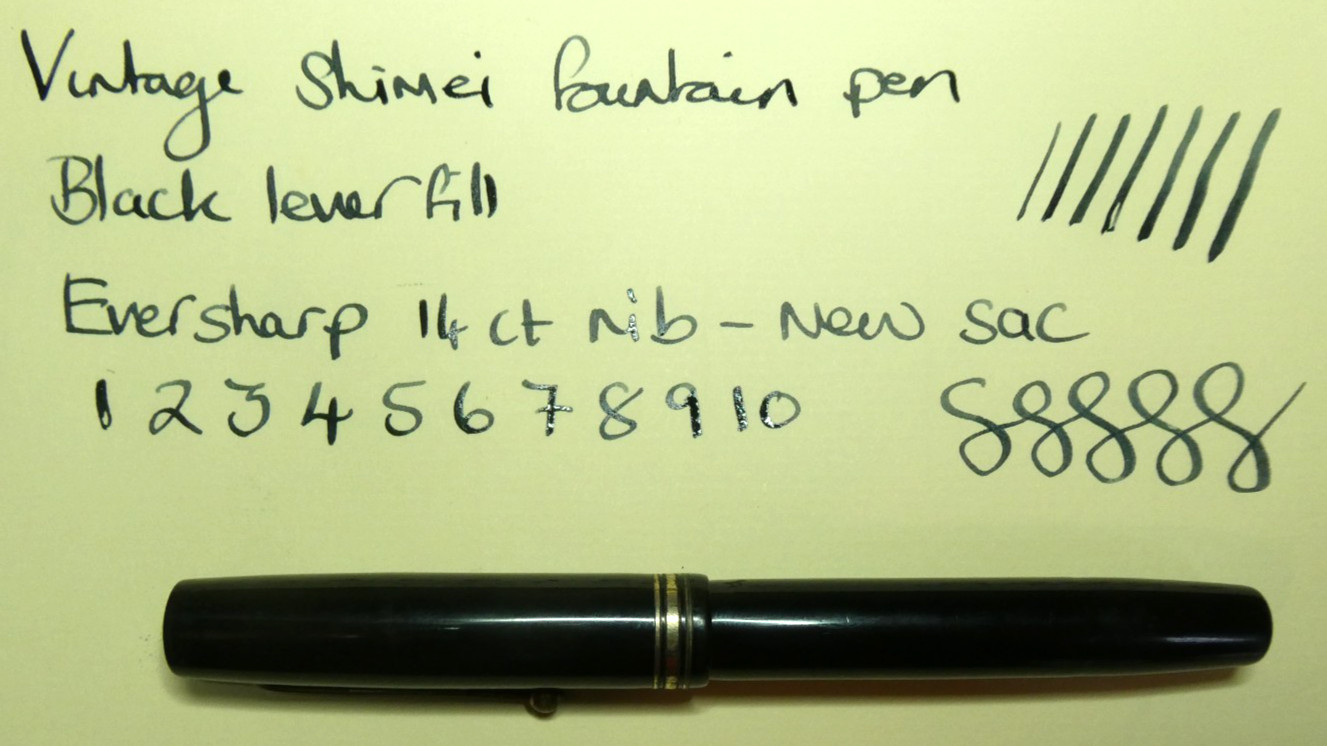 Vintage Shimei fountain pen
Black lever fill
Eversharp 14 ct nib - New sac
1 2 3 4 5 6 7 8 9 10